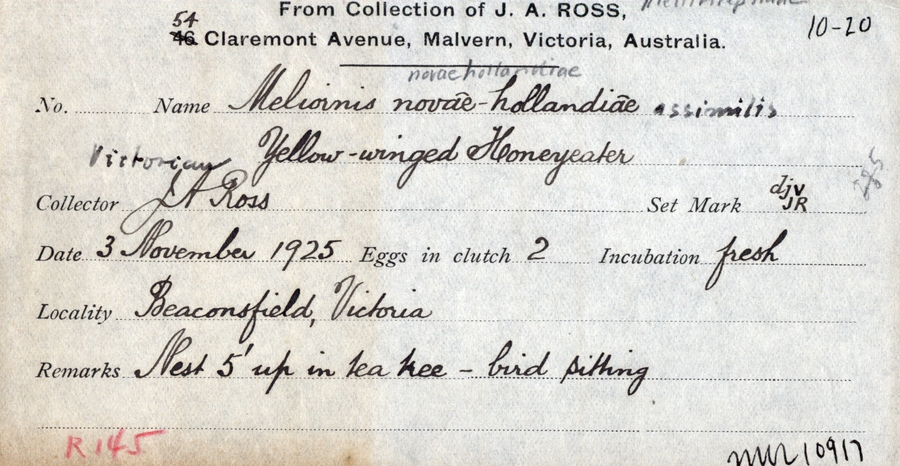 From Collection of J. A. ROSS,
10-20
54
46 Claremont Avenue, Malvern, Victoria, Australia.
novaehollandiae
No. Name Meliornis novae-hollandiae assimilis
Victorian Yellow-winged Honeyeater
Collector J A Ross Set Mark djv JR
Date 3 November 1925 Eggs in clutch 2 Incubation fresh
Locality Beaconsfield, Victoria
Remarks Nest 5' up in tea tree - bird sitting
R 145
10917